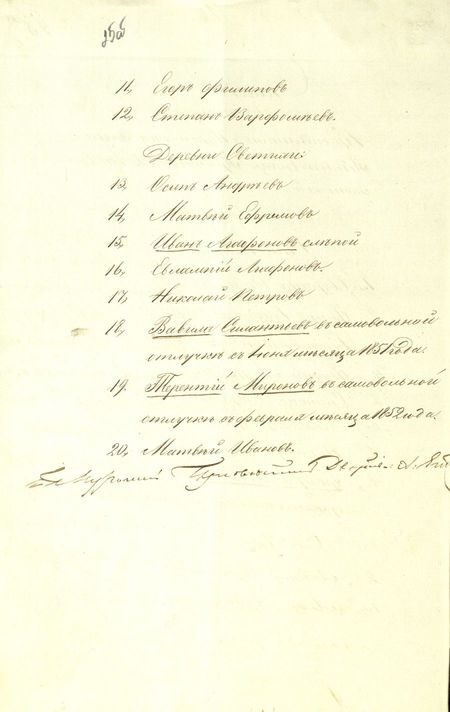 11, Егоръ Филиповъ
12, Степанъ Варфоломѣевъ.
Деревни Светицы:
13, Осипъ Андрѣевъ
14, Матвѣй Ефремовъ
15, Иванъ Агафоновъ слѣпой
16, Евлампій Агафоновъ.
17, Николай Петровъ
18, Вавила Силантьевъ въ самовольной
отлучкѣ съ Іюня мѣсяца 1851 года.
19, Терентій Мироновъ въ самовольной
отлучкѣ съ февраля мѣсяца 1852 года.
20, Матвѣй Ивановъ.